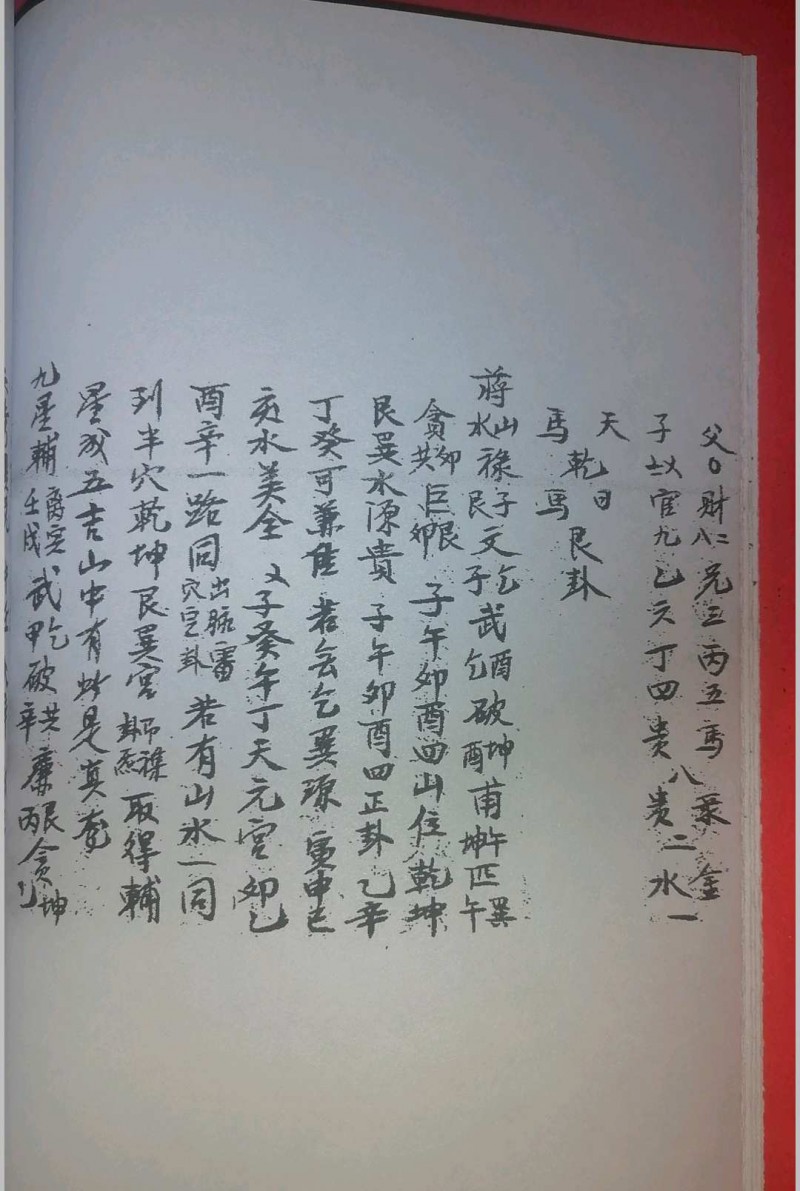 父〇財八二兄三丙五馬八禾金
子官九乙六丁四貴貴二水一
天乾日艮卦
馬馬
蔣山水祿子艮文乞子武酉乞破坤酉甫午坤匹巽午
貪卯共巨艮卯子午卯酉四山位乾坤
艮巽水源貴子午卯酉四正卦乙辛
丁癸可兼佳若会乞巽源寅申巳
亥水美全又子癸午丁天元宮卯乙
酉辛一路同出脉審穴定卦若有山水一同
列半穴乾坤艮巽宮取得輔
星成五吉山中有此是真
九星輔壬戌武乞甲破共辛廉艮丙貪坤